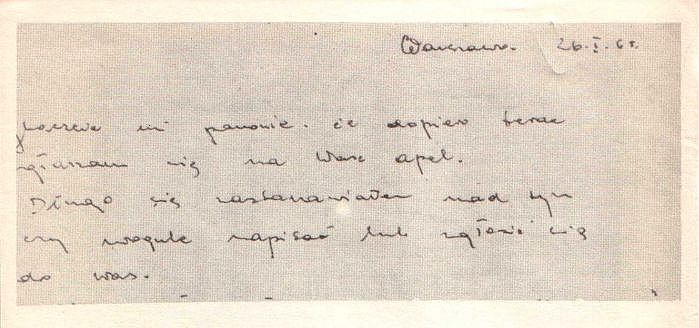 Warszawa. 26.I.65r.
mi panowie. że dopiero teraz
zgłaszam się na Wasz apel.
Długo się zastanawiałem nad tym
czy wogule napisać lub zgłosić się
do was.